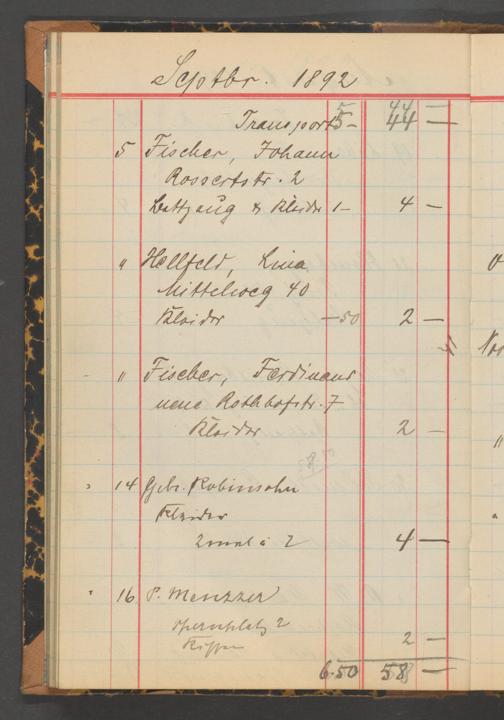 Septbr. 1892
5 44 —
Transport 5- 44 —
5 Fischer, Johann
Rossertstr. 2
Bettzeug & Kleider 1- 4 —
" Hellfeld, Lina
Mittelweg 40
Kleider —50 2 —
" Fischer, Ferdinand
neue Rothhofstr. 7
Kleider 2 —
14 Gebr. Robinsohn
Kleider
2 mal à 2 4 —
16 P. Menzzer
Opernplatz 2
2 —
6.50 58 —